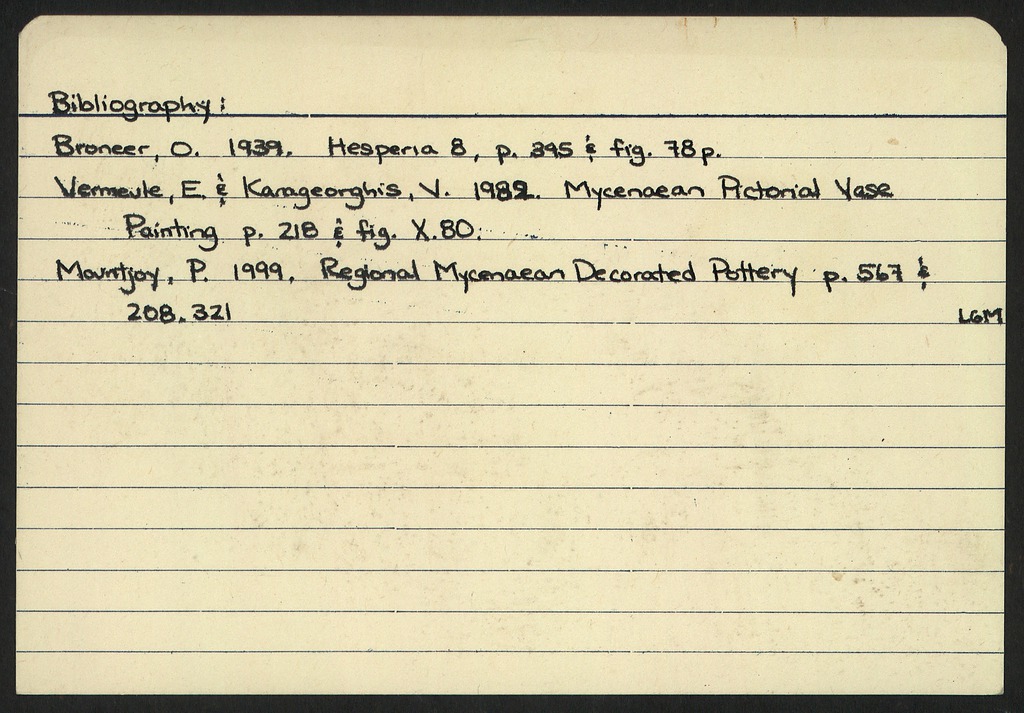 Bibliography:
Broneer, O. 1939. Hesperia 8, p. 395 & fig. 78p.
Vermeule, E. & Karageorghis, V. 1982. Mycenaean Pictorial Vase
Painting p. 218 & fig. X.80.
Mountjoy, P. 1999. Regional Mycenaean Decorated Pottery p. 567 &
208.321
LGM